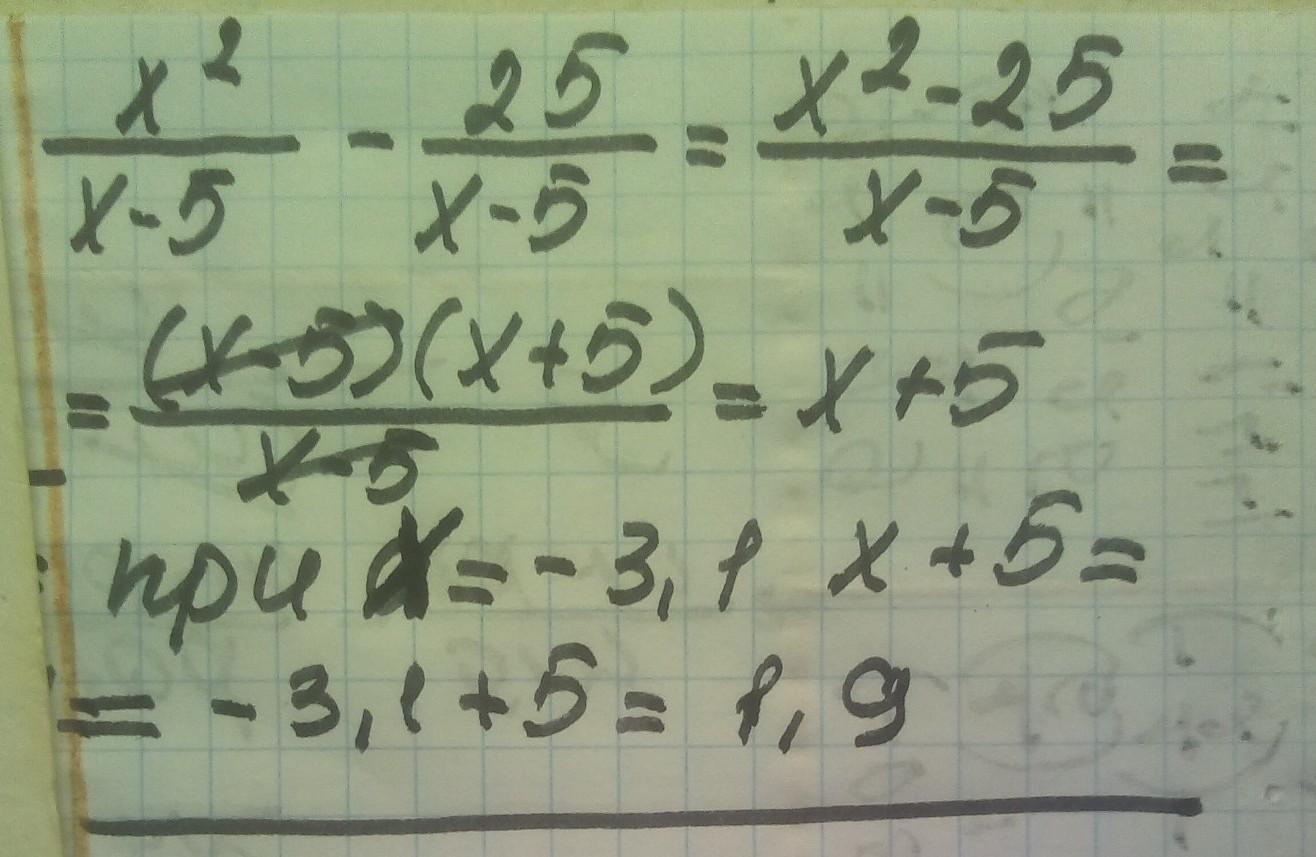 x²/(x-5) - 25/(x-5) = (x²-25)/(x-5) =
= (x-5)(x+5)/(x-5) = x+5
при x = -3,1 x+5=
= -3,1+5= 1,9